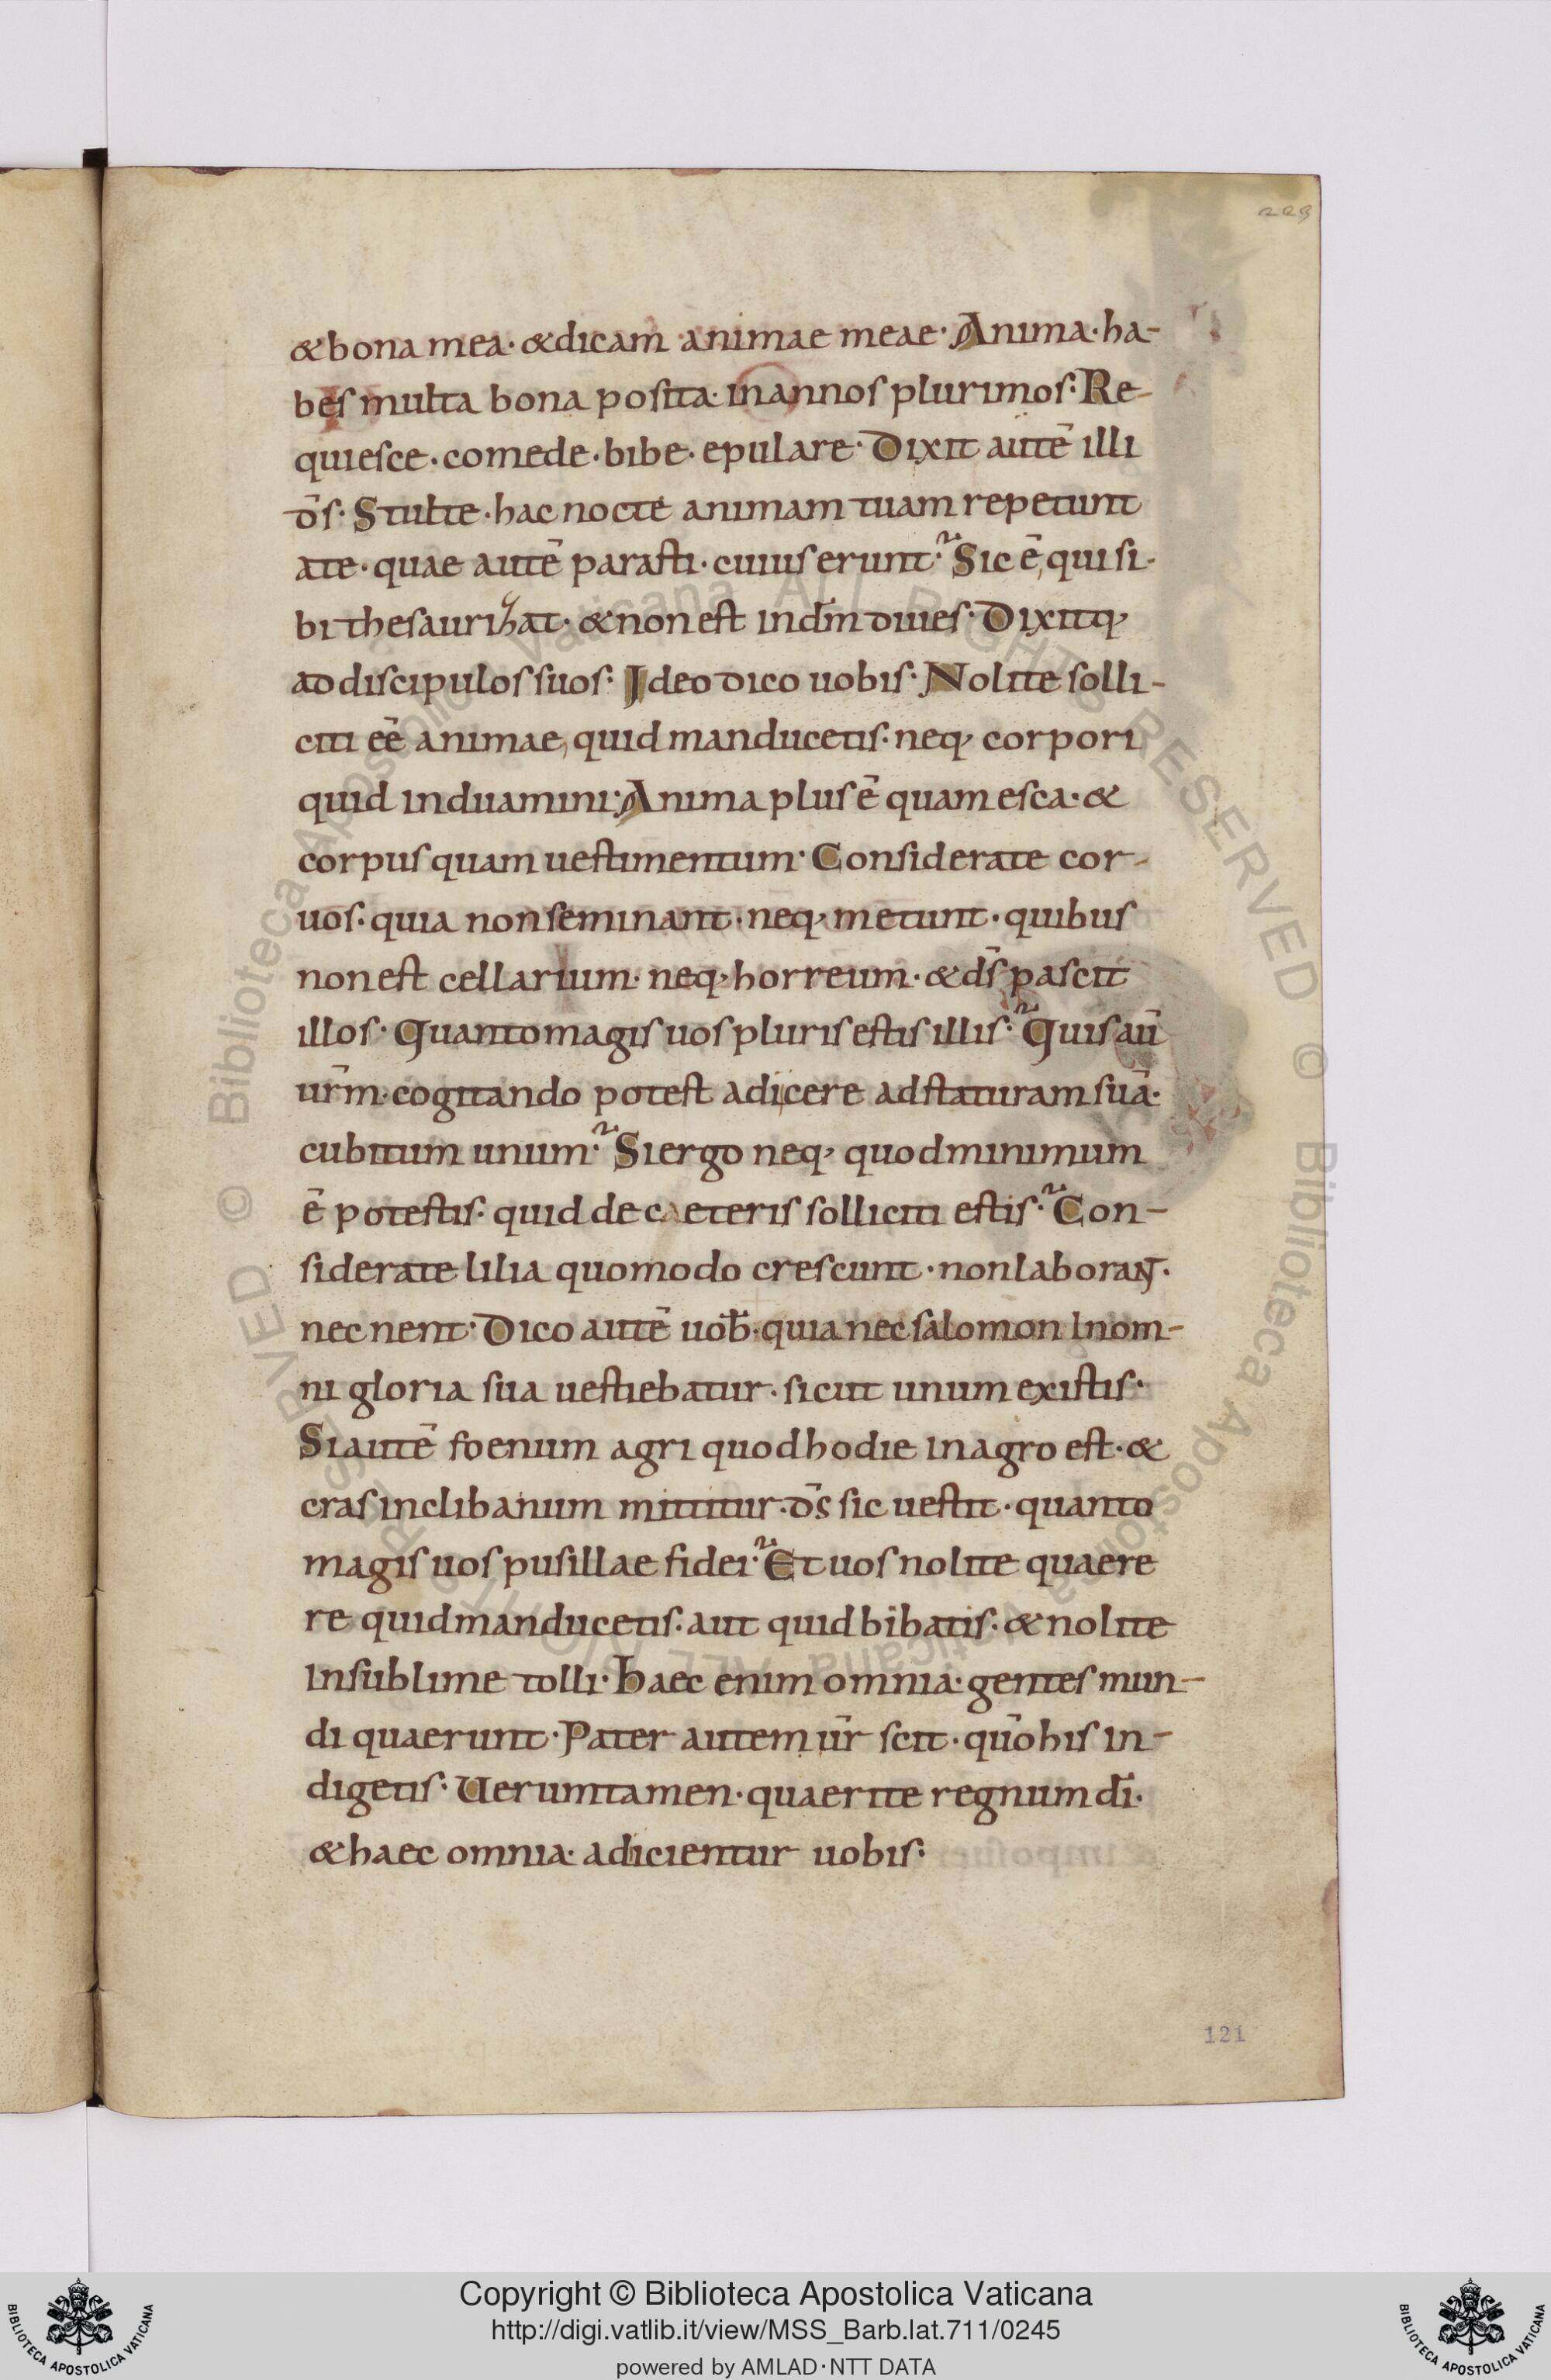 229
&bona mea· &dicam animae meae· Anima· ha-
bes multa bona posita· inannos plurimos· Re-
quiesce· comede· bibe· epulare· Dixit autē illi
d̄s· Stulte· hac nocte animam tuam repetunt
ate· quae autē parasti· cuius erunt? Sic ē, qui si-
bi thesaurizat· &non est indm̄ diues· Dixitq;
ad discipulos suos· Ideo dico uobis· Nolite solli-
citi eē animae, quid manducetis· neq; corpori
quid induamini· Anima plus ē quam esca· &
corpus quam uestimentum· Considerate cor-
uos· quia non seminant· neq; metunt· quibus
non est cellarium· neq; horreum· & d̄s pascit
illos· Quanto magis uos pluris estis illis? Quis aū
ur̄m· cogitando potest adicere adstaturam suā·
cubitum unum? Si ergo neq; quod minimum
ē potestis· quid de caeteris solliciti estis? Con-
siderate lilia quomodo crescunt· non laborant·
nec nent· Dico autē uob̄· quia nec salomon Inom-
ni gloria sua uestiebatur· sicut unum existis·
Si autē foenum agri quod hodie inagro est· &
cras inclibanum mittitur· d̄s sic uestit· quanto
magis uos pusillae fidei? Et uos nolite quaere
re quid manducetis· aut quid bibatis· & nolite
Insublime tolli· Haec enim omnia· gentes mun-
di quaerunt· Pater autem ūr scit· quō his in-
digetis· Uerumtamen· quaerite regnum dī·
&haec omnia· adicientur uobis·
121
Copyright © Biblioteca Apostolica Vaticana
http://digi.vatlib.it/view/MSS_Barb.lat.711/0245
powered by AMLAD·NTT DATA
BIBLIOTECA APOSTOLICA VATICANA
BIBLIOTECA APOSTOLICA VATICANA
© Biblioteca Apostolica Vaticana ALL RIGHTS RESERVED
© Biblioteca Apostolica Vaticana ALL RIGHTS RESERVED